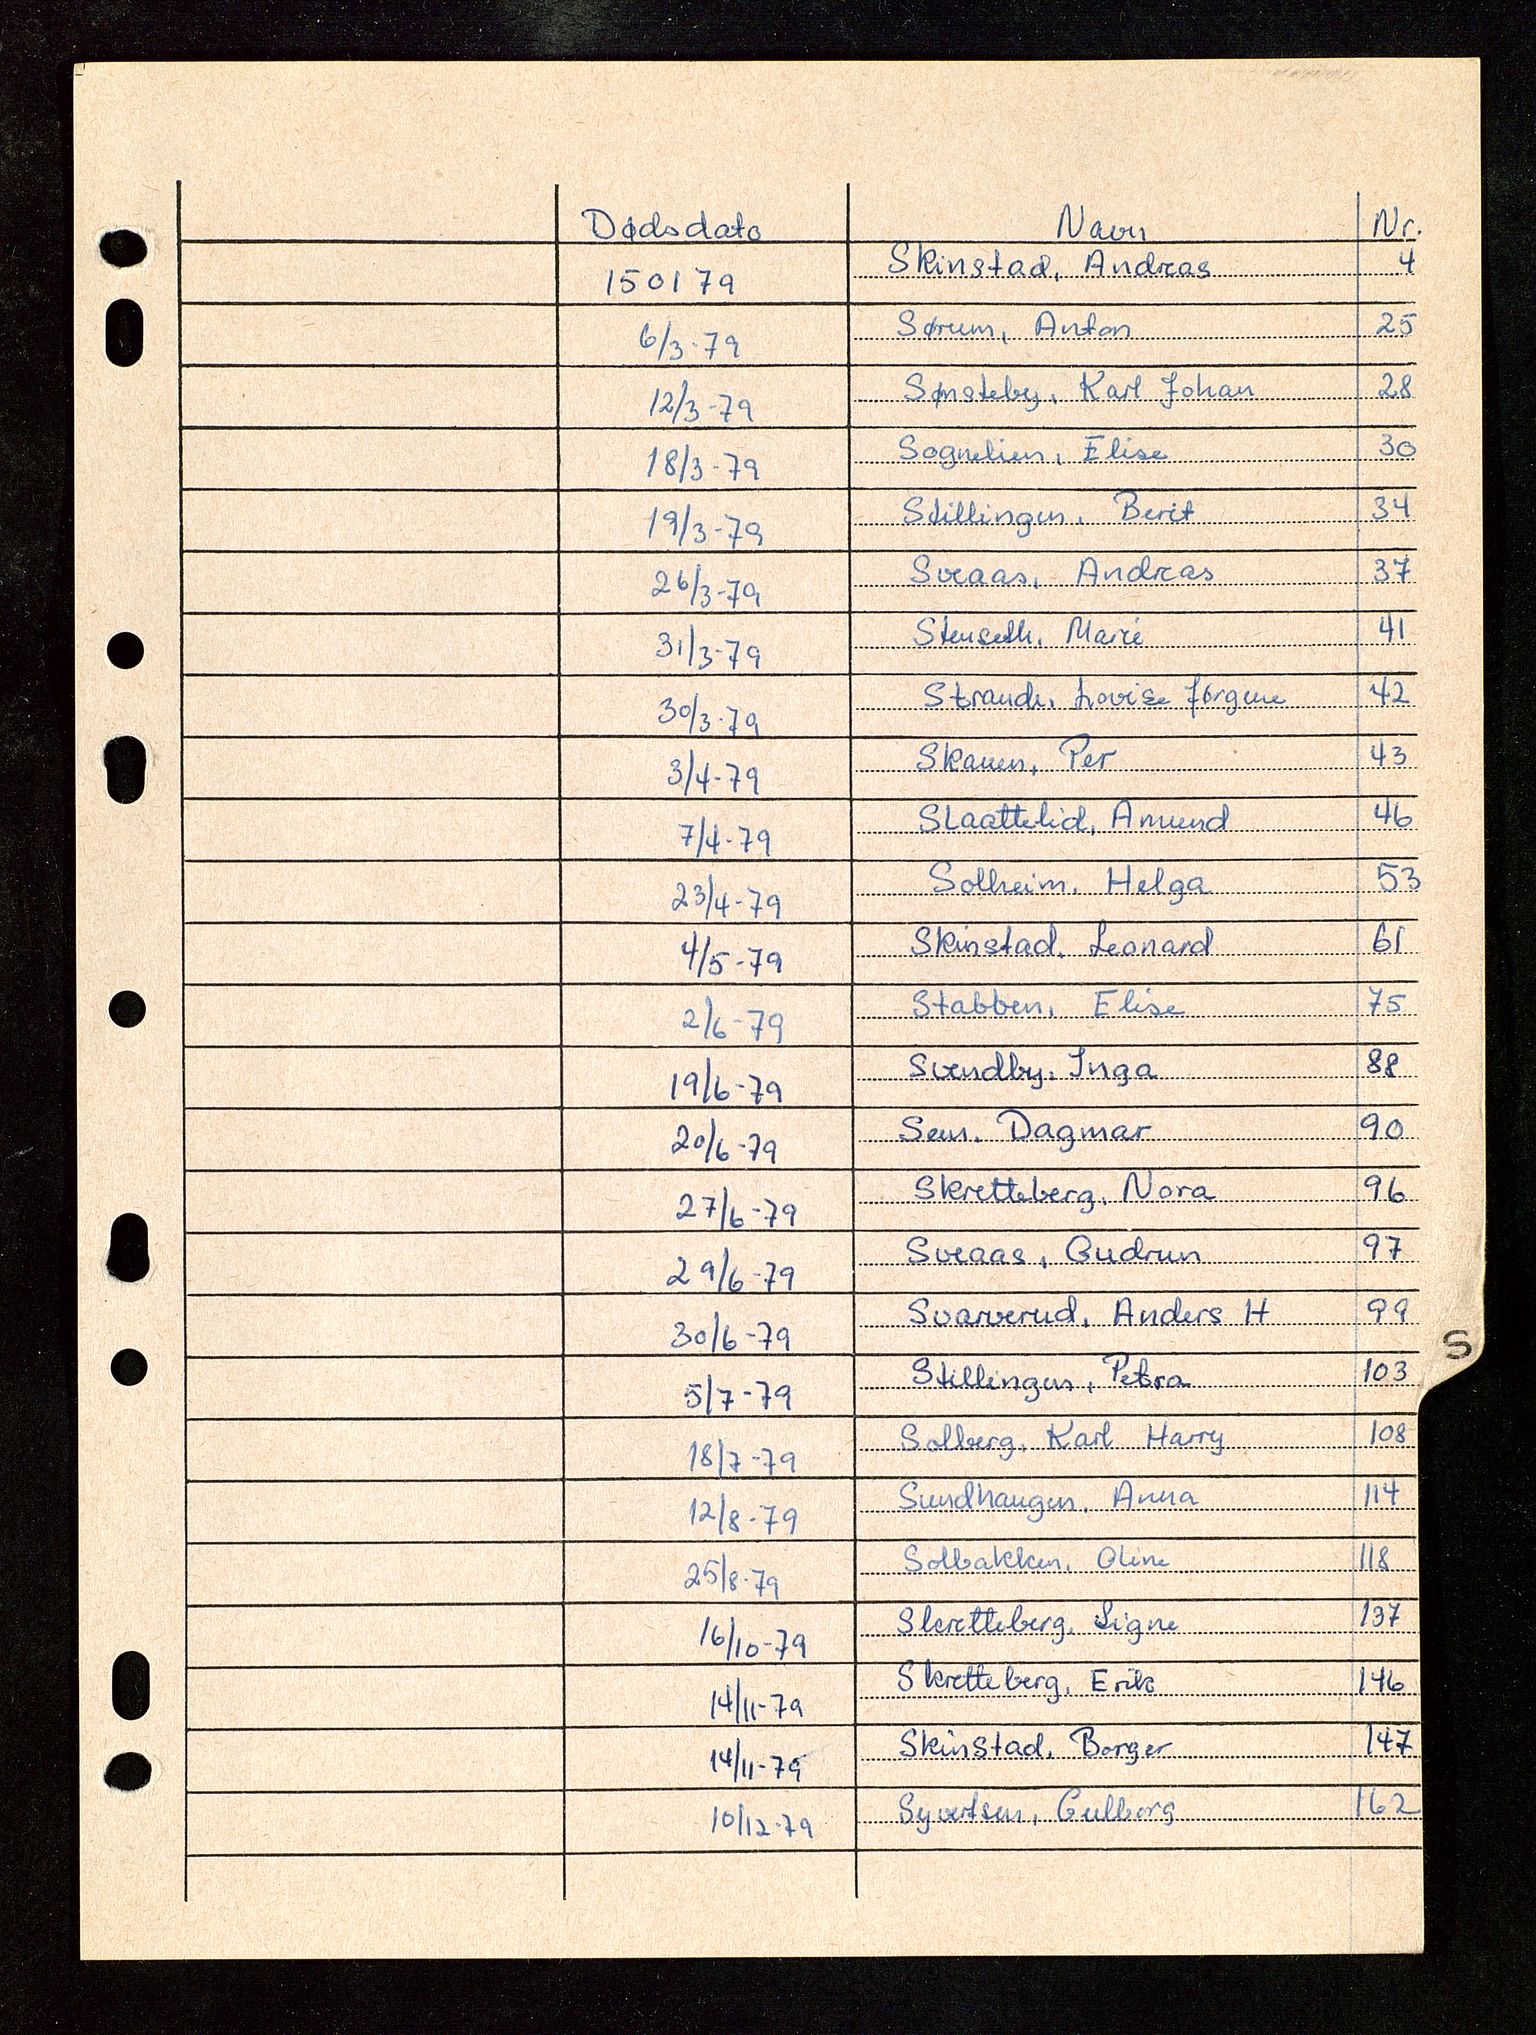 Dødsdato Navn Nr.
150179 Skinstad, Andreas 4
6/3-79 Sørum, Anton 25
12/3-79 Sønsteby, Karl Johan 28
18/3-79 Sognelien, Elise 30
19/3-79 Stillingen, Berit 34
26/3-79 Sveaas, Andreas 37
31/3-79 Stenseth, Marie 41
30/3-79 Strande, Lovise Jørgine 42
3/4-79 Skauen, Per 43
7/4-79 Slaattelid, Amund 46
23/4-79 Solheim, Helga 53
4/5-79 Skinstad, Leonard 61
2/6-79 Stabben, Elise 75
19/6-79 Svendby, Inga 88
20/6-79 Sen, Dagmar 90
27/6-79 Skretteberg, Nora 96
29/6-79 Sveaas, Gudrun 97
30/6-79 Svarverud, Anders H 99
S
5/7-79 Stillingen, Petra 103
18/7-79 Solberg, Karl Harry 108
12/8-79 Sundhaugen, Anna 114
25/8-79 Solbakken, Oline 118
16/10-79 Skretteberg, Signe 137
14/11-79 Skretteberg, Erik 146
14/11-79 Skinstad, Borger 147
10/12-79 Syvertsen, Gulborg 162